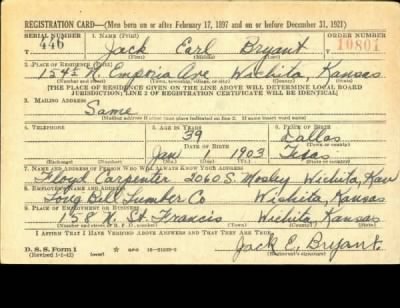 REGISTRATION CARD—(Men born on or after February 17, 1897 and on or before December 31, 1921)
SERIAL NUMBER 1. NAME (Print) ORDER NUMBER
T 446 Jack Earl Bryant 10801
(First) (Middle) (Last)
2. PLACE OF RESIDENCE (Print)
1543 N. Emporia Ave Wichita, Kansas
(Number and street) (Town, township, village, or city) (County) (State)
[THE PLACE OF RESIDENCE GIVEN ON THE LINE ABOVE WILL DETERMINE LOCAL BOARD
JURISDICTION; LINE 2 OF REGISTRATION CERTIFICATE WILL BE IDENTICAL]
3. MAILING ADDRESS
Same
[Mailing address if other than place indicated on line 2. If same insert word same]
4. TELEPHONE 5. AGE IN YEARS 6. PLACE OF BIRTH
39 Dallas
DATE OF BIRTH (Town or county)
Jan 1903 Texas
(Exchange) (Number) (Mo.) (Day) (Yr.) (State or country)
7. NAME AND ADDRESS OF PERSON WHO WILL ALWAYS KNOW YOUR ADDRESS
Floyd Carpenter 2060 S. Mosley Wichita, Kan
8. EMPLOYER'S NAME AND ADDRESS
Long Bell Lumber Co Wichita, Kansas
9. PLACE OF EMPLOYMENT OR BUSINESS
158 N. St. Francis Wichita, Kansas
(Number and street or R. F. D. number) (Town) (County) (State)
I AFFIRM THAT I HAVE VERIFIED ABOVE ANSWERS AND THAT THEY ARE TRUE.
D. S. S. Form 1 Jack E. Bryant.
(Revised 1-1-42) (over) (Registrant's signature)